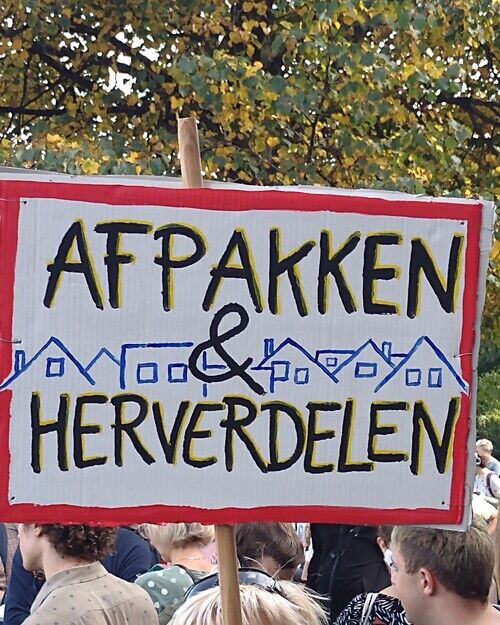 AFPAKKEN
&
HERVERDELEN